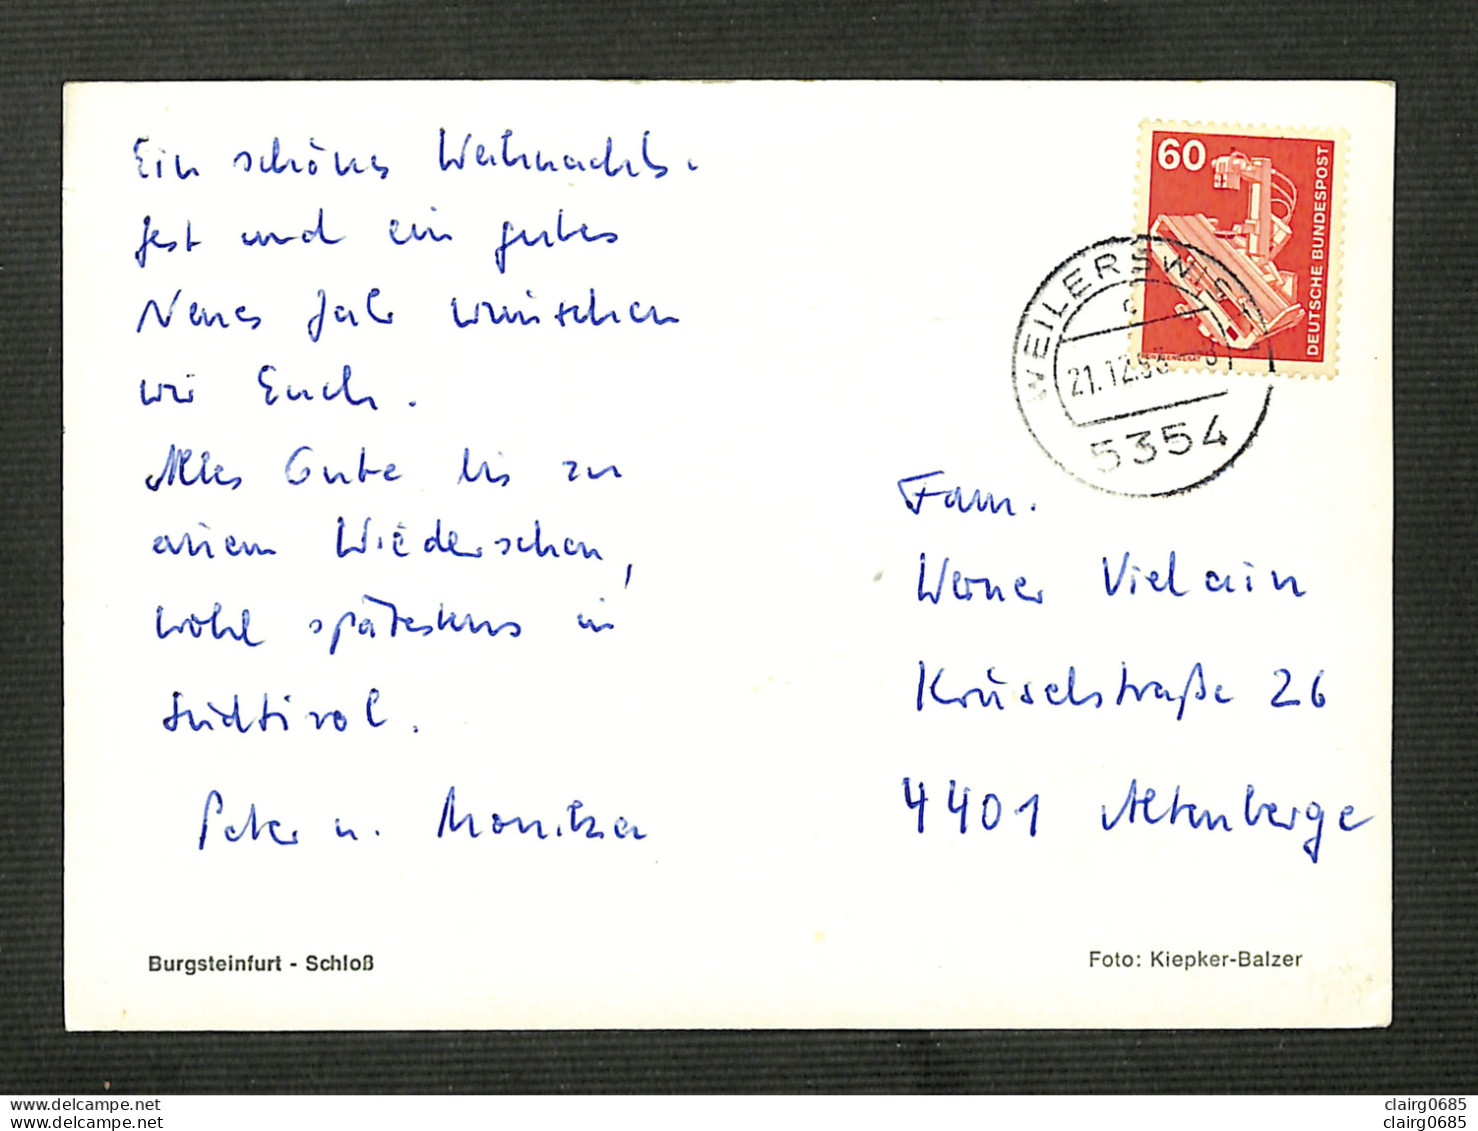 Ein schönes Weihnachts-
fest und ein gutes
Neues Jahr wünschen
wir Euch.
Alles Gute bis zu
einem Wiedersehen,
wohl spätestens in
Südtirol.
Peter u. Monika
60
DEUTSCHE BUNDESPOST
WEILERSWIST
21.12.
5354
Fam.
Werner Vielain
Krüselstraße 26
4401 Altenberge
Burgsteinfurt - Schloß
Foto: Kiepker-Balzer
www.delcampe.net
your online marketplace for collectors
clairg0685
clairg0685